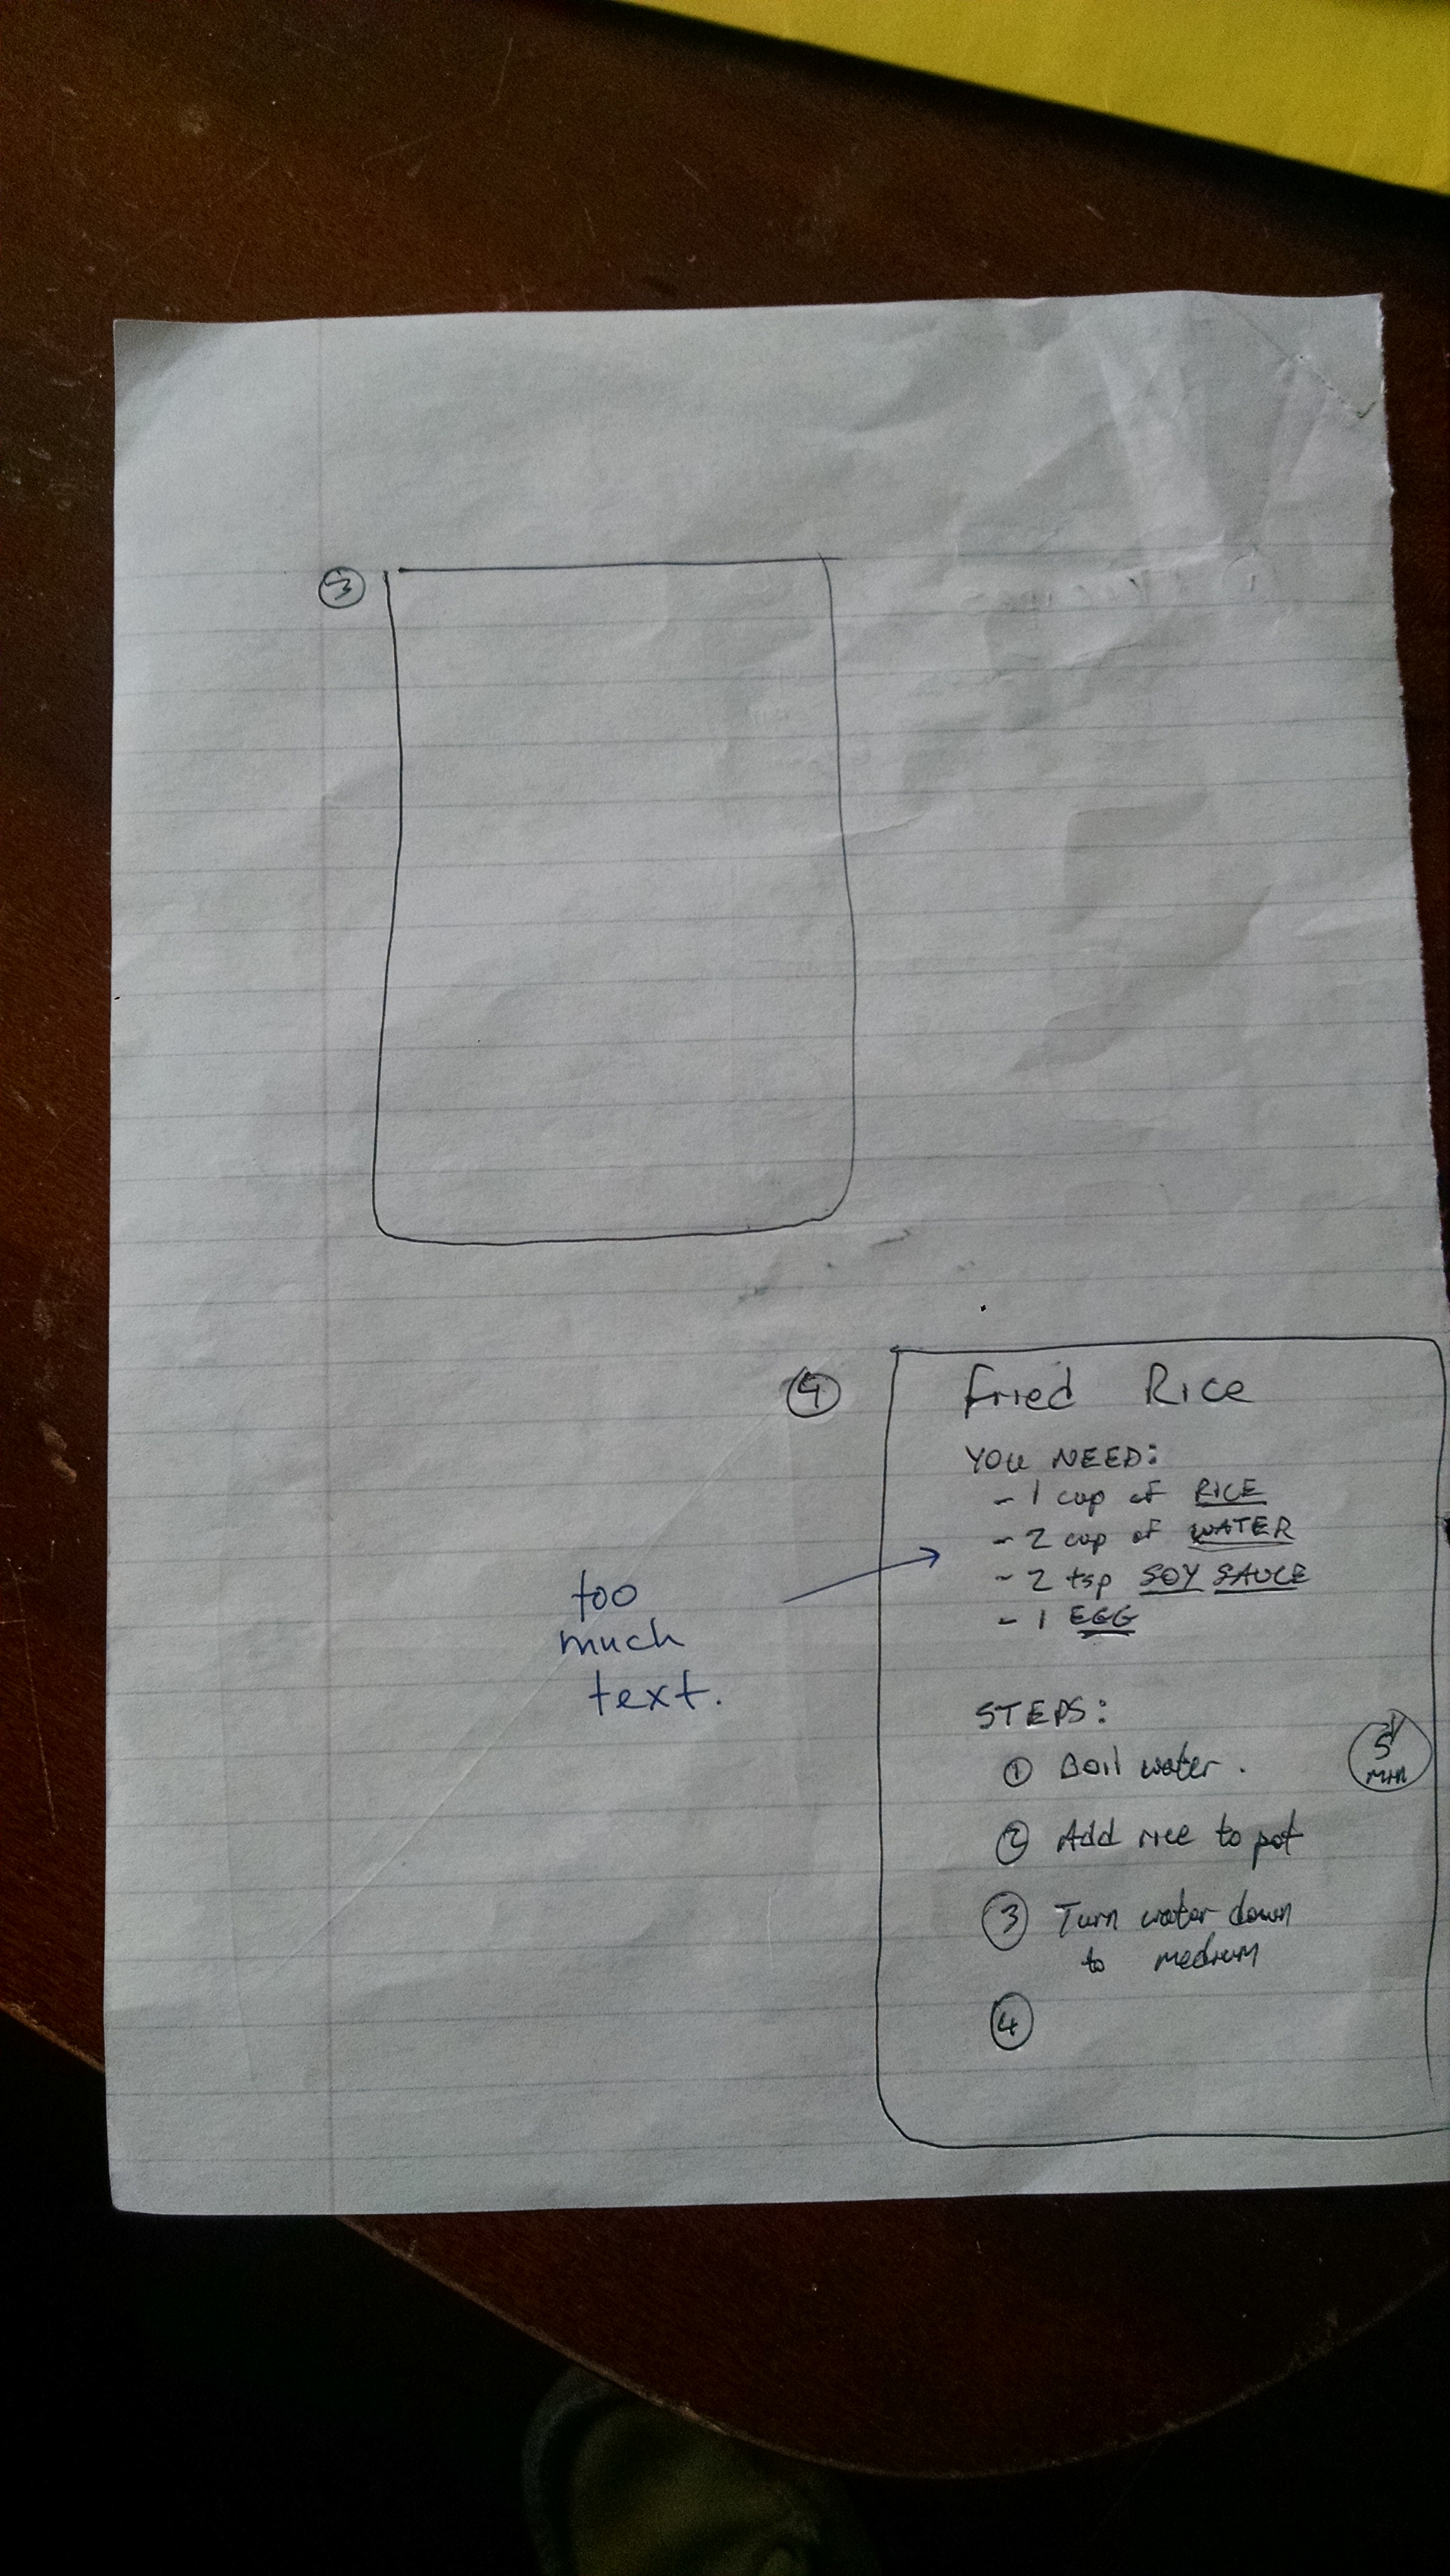 3
4
Fried Rice
YOU NEED:
- 1 cup of RICE
- 2 cup of WATER
- 2 tsp SOY SAUCE
- 1 EGG
too
much
text.
STEPS:
1 Boil water.
5
min
2 Add rice to pot
3 Turn water down
to medium
4